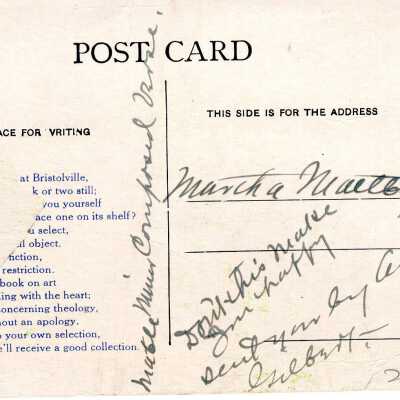 POST CARD
ACE FOR VRITING
THIS SIDE IS FOR THE ADDRESS
at Bristolville,
k or two still;
you yourself
ace one on its shelf?
u select,
l object.
fiction,
restriction.
book on art
ing with the heart;
concerning theology,
hout an apology,
o your own selection,
e'll receive a good collection.
Mable Minor Composed Verse.
Martha
Don't this make
you happy
sent you by
Gilbert